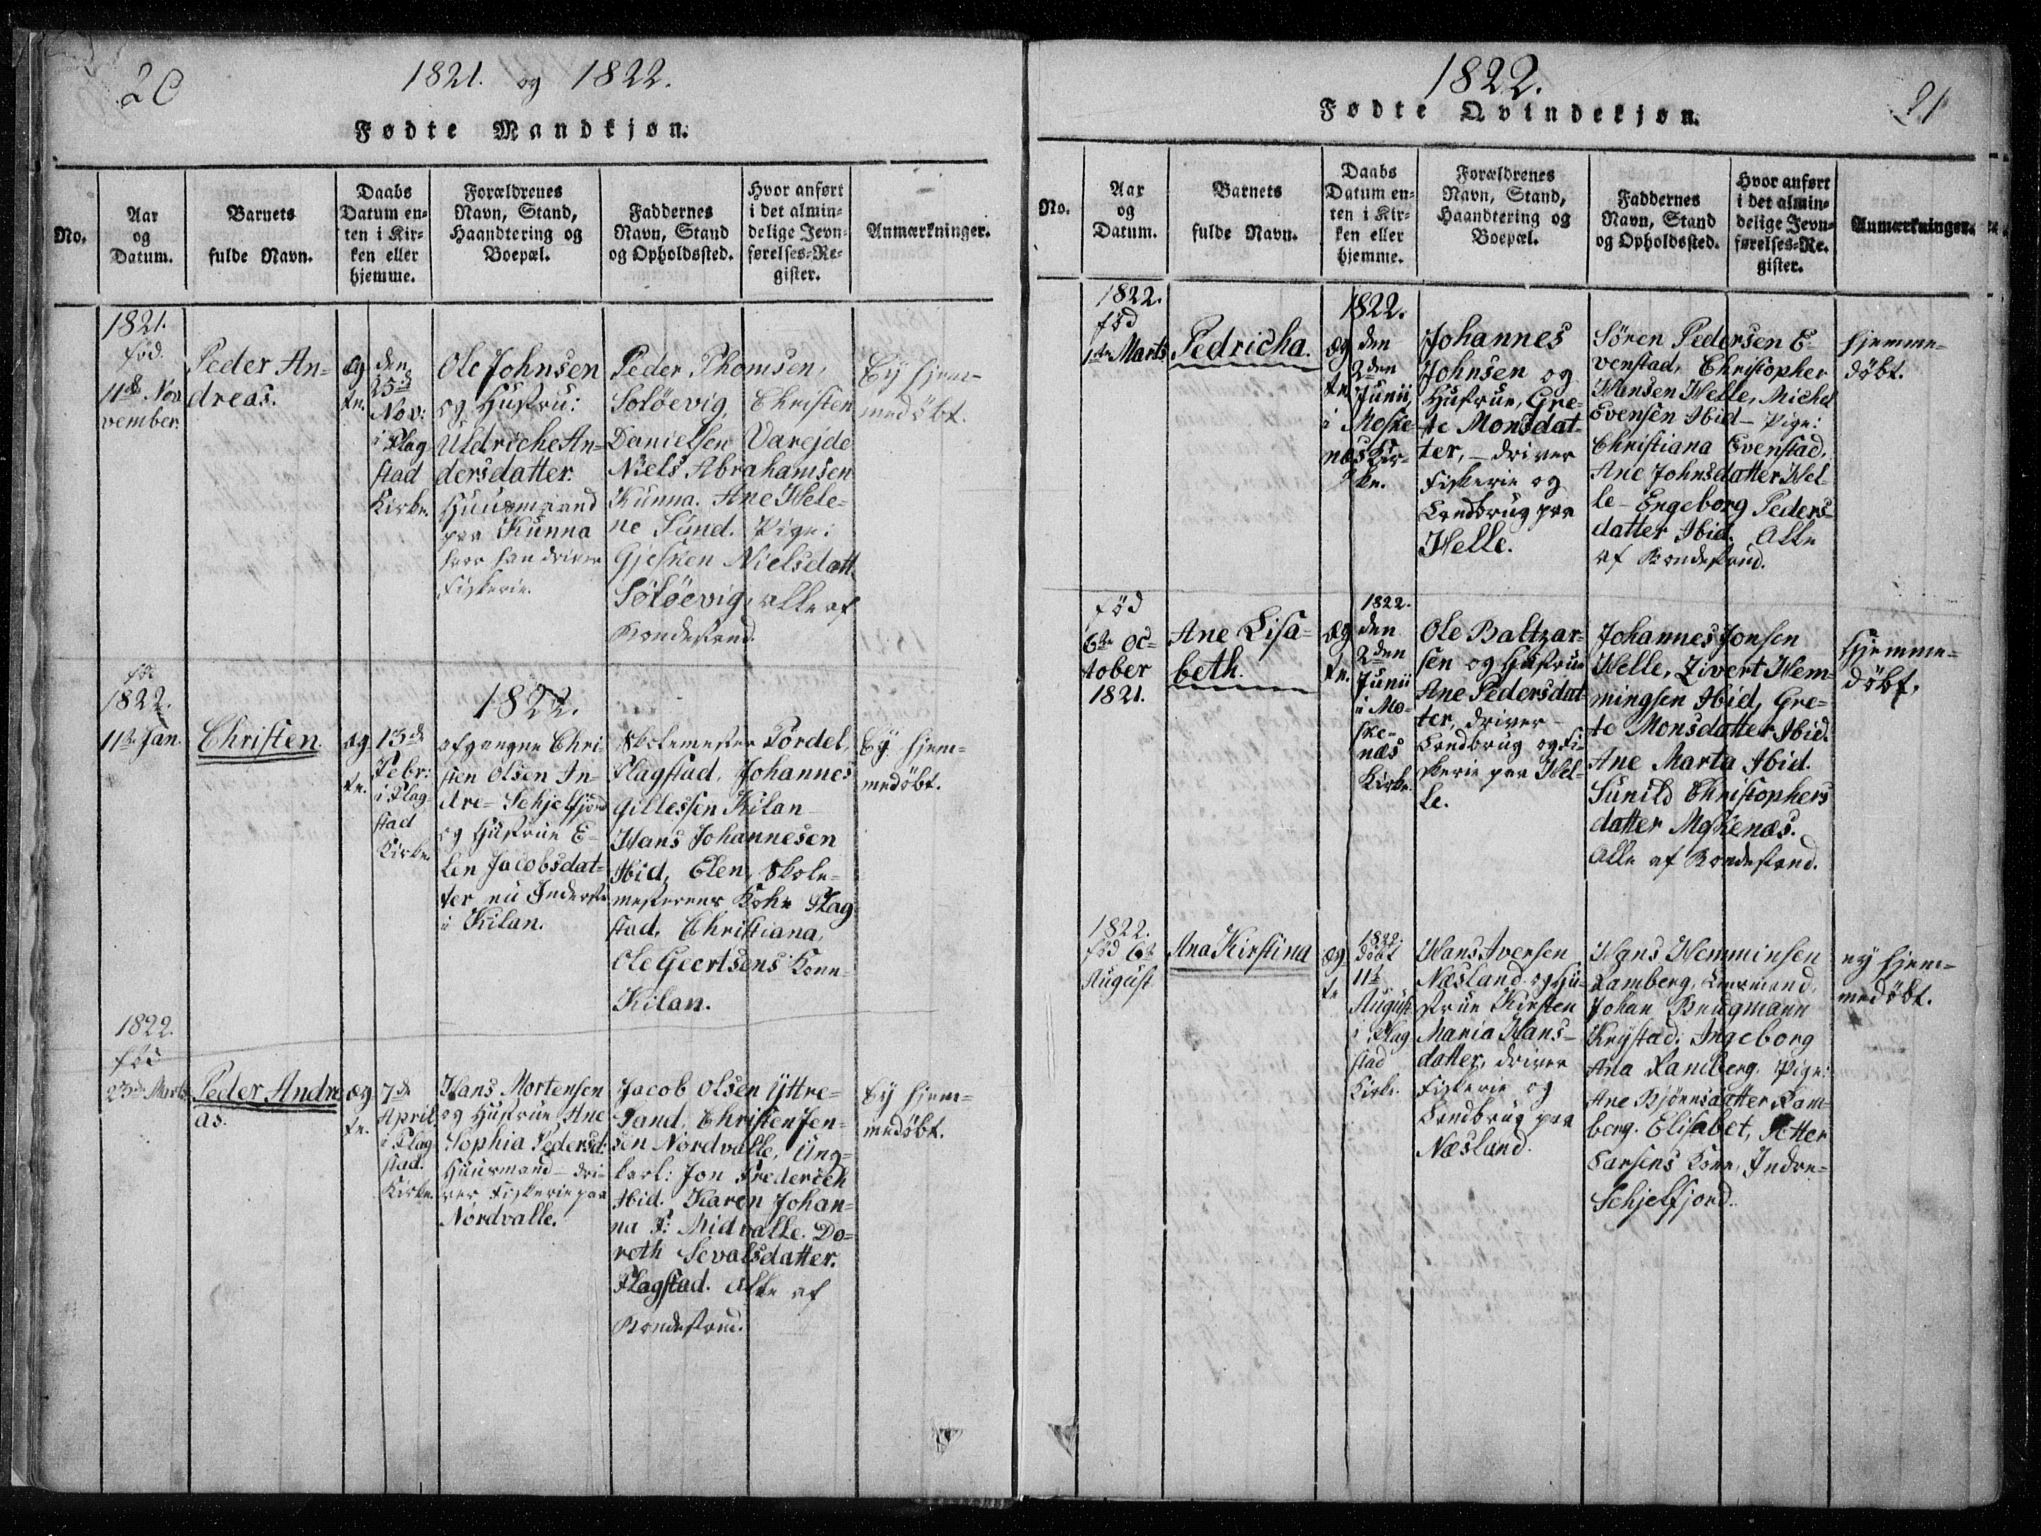 20
1821. og 1822.
Fødte Mandkjøn.
No.
Aar
og
Datum.
Barnets
fulde Navn.
Daabs
Datum en-
ten i Kir-
ken eller
hjemme.
Forældrenes
Navn, Stand,
Haandtering og
Boepæl.
Faddernes
Navn, Stand
og Opholdssted.
Hvor anført
i det almin-
delige Jevn-
førelses-Re-
gister.
Anmærkninger.
1821.
fød.
11te Nov
vember.
Peder An-
dreas.
Æg
te.
den
25de
Nov:
i Flag
stad
Kirke.
Ole Johnsen
og Hustru:
Uldriche An-
dersdatter.
Huusmand
paa Kunna
hvor han driver
Fiskerie.
Peder Thomsen,
Soløevig, Christen
Danielsen Varejde
Niels Abrahamsen
Kunna. Ane Hele-
ne Sund. Pige:
Gjesken Nielsdatt.
Soløevig, alle af
Bondestand.
Ej hjem-
medøbt.
fød
1822.
11te Jan.
Christen.
Æg
te.
13de
Febr:
i Flag
stad
Kirke.
1822.
afgangne Chri
sten Olsen In-
dre- Schjelfjord
og Hustrue E-
len Jacobsdat-
ter nu Inderste
i Kilan.
Skolemester Tordel,
Flagstad, Johannes
Gillessen Kilan
Hans Johannesen
Ibid, Elen, Skole-
mesterens Kone Flag
stad, Christiana,
Ole Geertsens Kone
Kilan.
Ej hjem-
medøbt.
1822.
fød
23de Marts
Peder Andre
as.
Æg
te.
7de
April
i Flag
stad.
Kirke.
Hans Mortensen
og Hustrue Ane
Sophia Pedersd:
Huusmand- dri-
ver Fiskerie paa
Nordvalle.
Jacob Olsen Yttre-
Sand, Christen Jen-
sen Nordvalle, Ung-
karl: Jon Frederich
Ibid. Karen Johan-
na P: Midvalle. Do-
roth Sevalsdatter.
Flagstad. Alle af
Bondestand.
Ej hjem-
medøbt.
1822.
Fødte Qvindekjøn.
21
No.
Aar
og
Datum.
Barnets
fulde Navn.
Daabs
Datum en-
ten i Kir-
ken eller
hjemme.
Forældrenes
Navn, Stand,
Haandtering og
Boepæl.
Faddernes
Navn, Stand
og Opholdssted.
Hvor anført
i det almin-
delige Jevn-
førelses-Re-
gister.
Anmærkninger.
1822.
fød
1ste Marts
Pedricha.
Æg
te.
1822.
den
2den
Junii
i Moske-
næs Kir-
ke.
Johannes
Johnsen og
Hustrue, Gre-
te Monsdat-
ter, - driver
Fiskerie og
Landbrug paa
Helle.
Søren Pedersen E-
venstad, Christopher
Hansen Helle, Michel
Evensen Ibid- Pige:
Christiana Evenstad,
Ane Johnsdatter Hel-
le- Engeborg Peders-
datter Ibid. Alle
af Bondestand.
hjemme-
døbt.
fød
6te Oc-
tober
1821.
Ane Lisa-
beth.
Æg
te.
1822.
den
2den
Junii
i Mo-
ske-
næs
Kirke.
Ole Baltzar-
sen og Hustrue
Ane Pedersdat
ter, driver-
Landbrug og Fi-
skerie paa Hel-
le.
Johannes Jonsen
Helle, Zivert Hem-
mingsen Ibid, Gre-
te Monsdatter Ibid.
Ane Marta Ibid.
Sunild Christophers
datter Moskenæs.
Alle af Bondestand.
hjemme-
døbt.
1822.
fød 6te
August
Ana Kirstina
Æg
te
1822.
døbt
11te
August
i Flag
stad
Kirke.
Hans Iversen
Næsland og Hu-
strue Kirsten
Maria Hans-
datter, driver
Fiskerie og
Landbrug paa
Næsland.
Hans Hemminsen
Ramberg, Leermand,
Johan Brugmann
Krystad. Ingeborg
Ana Ramberg. Pige:
Ane Bjørnsdatter Ram-
berg. Elisabet, Petter
Larsens Kone, Indre-
Schjelfjord.
ej hjem-
medøbt.